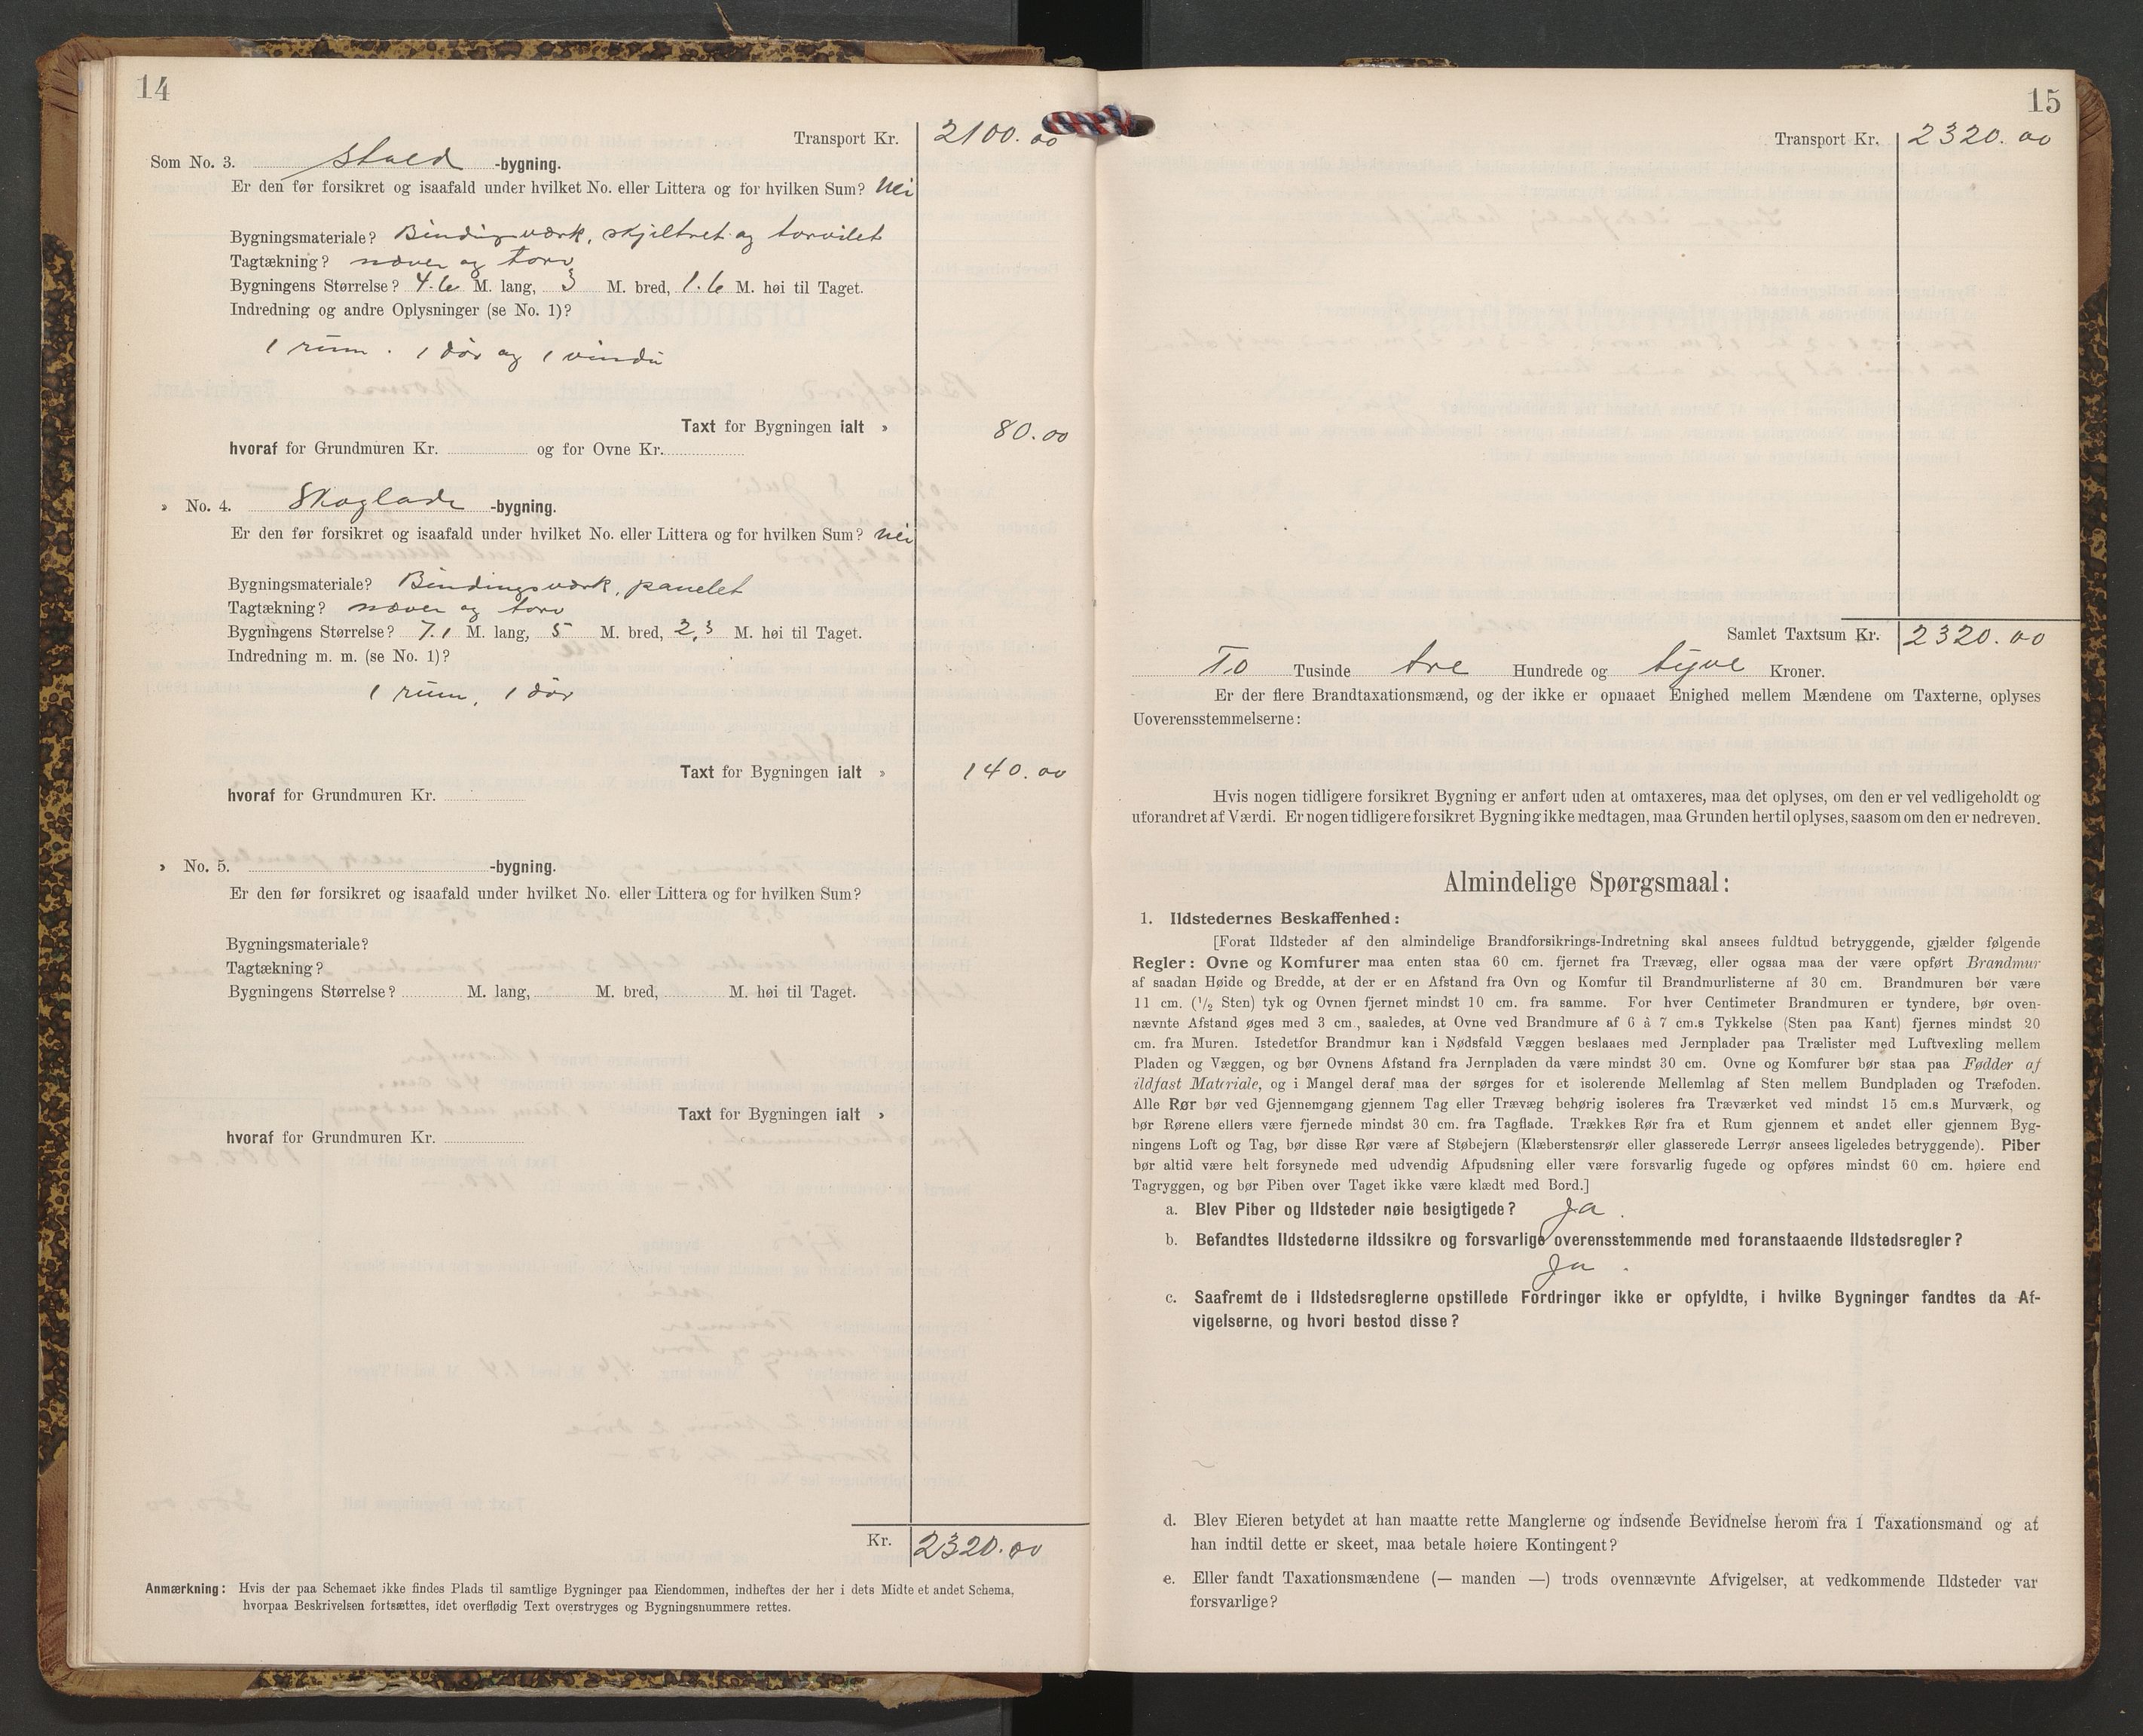 14
Transport Kr. 2100.00
Som No. 3. Stald -bygning.
Er den før forsikret og isaafald under hvilket No. eller Littera og for hvilken Sum? Nei
Bygningsmateriale? Bindingsværk, skjeltret og torvilet
Tagtækning? næver og torv
Bygningens Størrelse? 4.6 M. lang, 3 M. bred, 1.6 M. høi til Taget.
Indredning og andre Oplysninger (se No. 1)?
1 rum. 1 dör og 1 vindu
Taxt for Bygningen ialt » 80.00
hvoraf for Grundmuren Kr. og for Ovne Kr.
» No. 4. Skoglade -bygning.
Er den før forsikret og isaafald under hvilket No. eller Littera og for hvilken Sum? Nei
Bygningsmateriale? Bindingsværk, panelet
Tagtækning? næver og torv
Bygningens Størrelse? 7.1 M. lang, 5 M. bred, 2,3 M. høi til Taget.
Indredning m. m. (se No. 1)?
1 rum, 1 dör
Taxt for Bygningen ialt » 140.00
hvoraf for Grundmuren Kr.
» No. 5. -bygning.
Er den før forsikret og isaafald under hvilket No. eller Littera og for hvilken Sum?
Bygningsmateriale?
Tagtækning?
Bygningens Størrelse? M. lang, M. bred, M. høi til Taget.
Taxt for Bygningen ialt »
hvoraf for Grundmuren Kr.
Kr. 2320.00
Anmærkning: Hvis der paa Schemaet ikke findes Plads til samtlige Bygninger paa Eiendommen, indheftes der her i dets Midte et andet Schema,
hvorpaa Beskrivelsen fortsættes, idet overflødig Text overstryges og Bygningsnummere rettes.
15
Transport Kr. 2320.00
Samlet Taxtsum Kr. 2320.00
To Tusinde tre Hundrede og tyve Kroner.
Er der flere Brandtaxationsmænd, og der ikke er opnaaet Enighed mellem Mændene om Taxterne, oplyses
Uoverensstemmelserne:
Hvis nogen tidligere forsikret Bygning er anført uden at omtaxeres, maa det oplyses, om den er vel vedligeholdt og
uforandret af Værdi. Er nogen tidligere forsikret Bygning ikke medtagen, maa Grunden hertil oplyses, saasom om den er nedreven.
Almindelige Spørgsmaal:
1. Ildstedernes Beskaffenhed:
[Forat Ildsteder af den almindelige Brandforsikrings-Indretning skal ansees fuldtud betryggende, gjælder følgende
Regler: Ovne og Komfurer maa enten staa 60 cm. fjernet fra Trævæg, eller ogsaa maa der være opført Brandmur
af saadan Høide og Bredde, at der er en Afstand fra Ovn og Komfur til Brandmurlisterne af 30 cm. Brandmuren bør være
11 cm. (1/2 Sten) tyk og Ovnen fjernet mindst 10 cm. fra samme. For hver Centimeter Brandmuren er tyndere, bør oven-
nævnte Afstand øges med 3 cm., saaledes, at Ovne ved Brandmure af 6 à 7 cm.s Tykkelse (Sten paa Kant) fjernes mindst 20
cm. fra Muren. Istedetfor Brandmur kan i Nødsfald Væggen beslaaes med Jernplader paa Trælister med Luftvexling mellem
Pladen og Væggen, og bør Ovnens Afstand fra Jernpladen da være mindst 30 cm. Ovne og Komfurer bør staa paa Fødder af
ildfast Materiale, og i Mangel deraf maa der sørges for et isolerende Mellemlag af Sten mellem Bundpladen og Træfoden.
Alle Rør bør ved Gjennemgang gjennem Tag eller Trævæg behørig isoleres fra Træværket ved mindst 15 cm.s Murværk, og
bør Rørene ellers være fjernede mindst 30 cm. fra Tagflade. Trækkes Rør fra et Rum gjennem et andet eller gjennem Byg-
ningens Loft og Tag, bør disse Rør være af Støbejern (Klæberstensrør eller glasserede Lerrør ansees ligeledes betryggende). Piber
bør altid være helt forsynede med udvendig Afpudsning eller være forsvarlig fugede og opføres mindst 60 cm. høiere end
Tagryggen, og bør Piben over Taget ikke være klædt med Bord.]
a. Blev Piber og Ildsteder nøie besigtigede? Ja.
b. Befandtes Ildstederne ildssikre og forsvarlige overensstemmende med foranstaaende Ildstedsregler?
Ja.
c. Saafremt de i Ildstedsreglerne opstillede Fordringer ikke er opfyldte, i hvilke Bygninger fandtes da Af-
vigelserne, og hvori bestod disse?
d. Blev Eieren betydet at han maatte rette Manglerne og indsende Bevidnelse herom fra 1 Taxationsmand og at
han indtil dette er skeet, maa betale høiere Kontingent?
e. Eller fandt Taxationsmændene (— manden —) trods ovennævnte Afvigelser, at vedkommende Ildsteder var
forsvarlige?